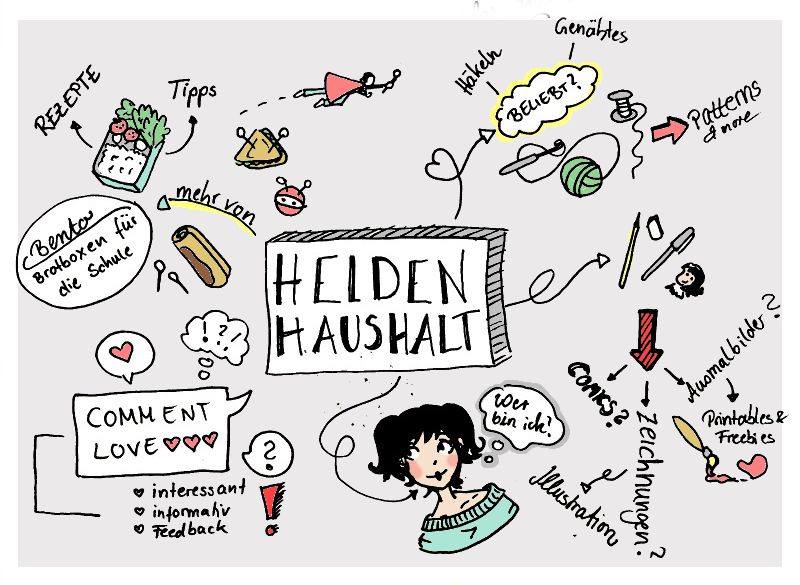 Genähtes
Häkeln
BELIEBT?
Patterns
& more
REZEPTE
Tipps
mehr von
Bento
Brotboxen für
die Schule
HELDEN
HAUSHALT
!?!
COMMENT
LOVE
?
interessant
informativ
Feedback
Wer
bin ich?
COMICS?
Zeichnungen?
Illustration
Ausmalbilder?
Printables &
Freebies